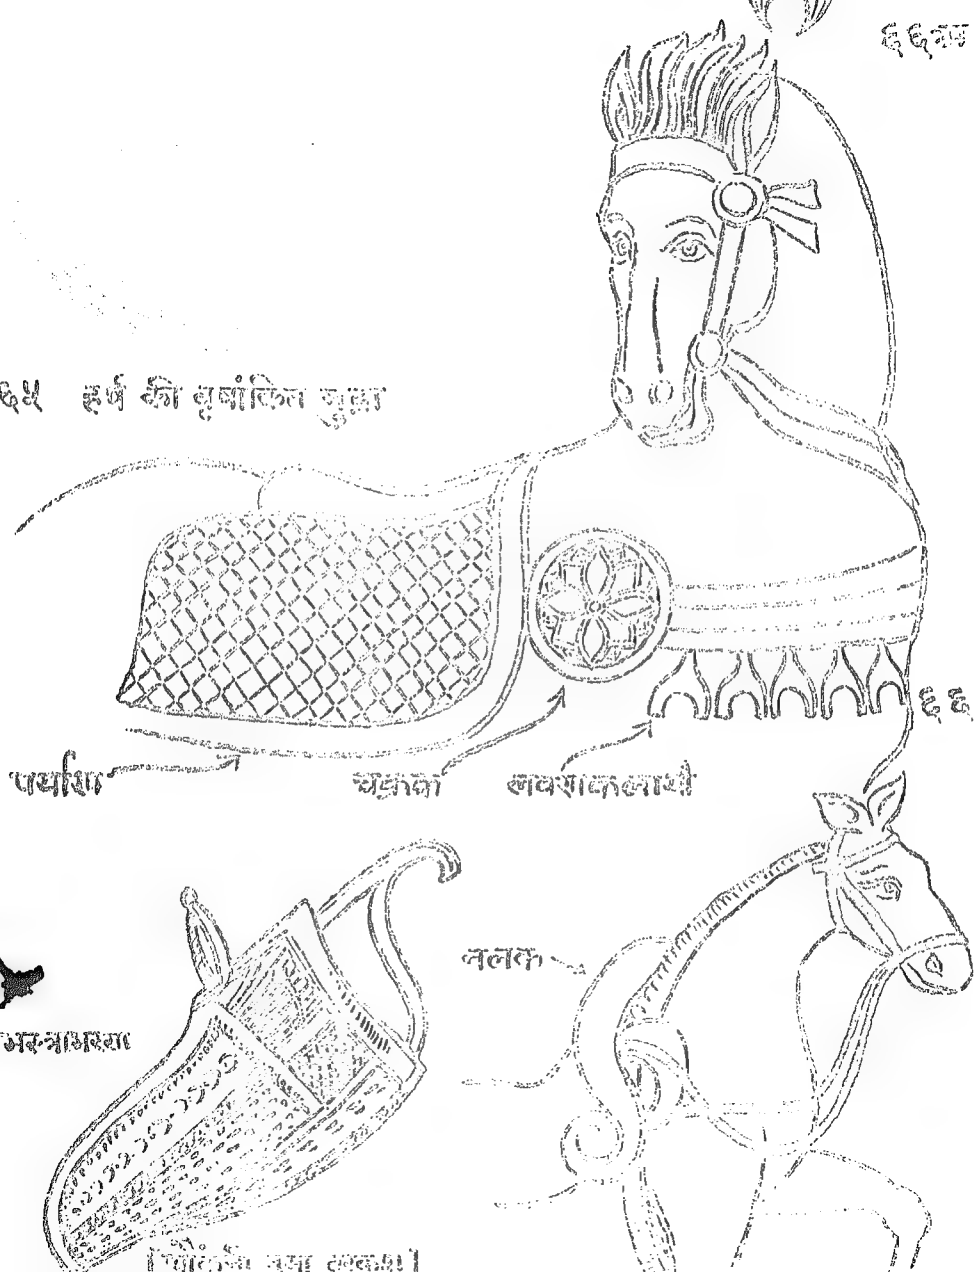 ६६अ
६५ हर्ष की वृषांकित मुद्रा
६६
पर्याण
चक्रक
लवणकलायी
नलक
भस्त्राभरण